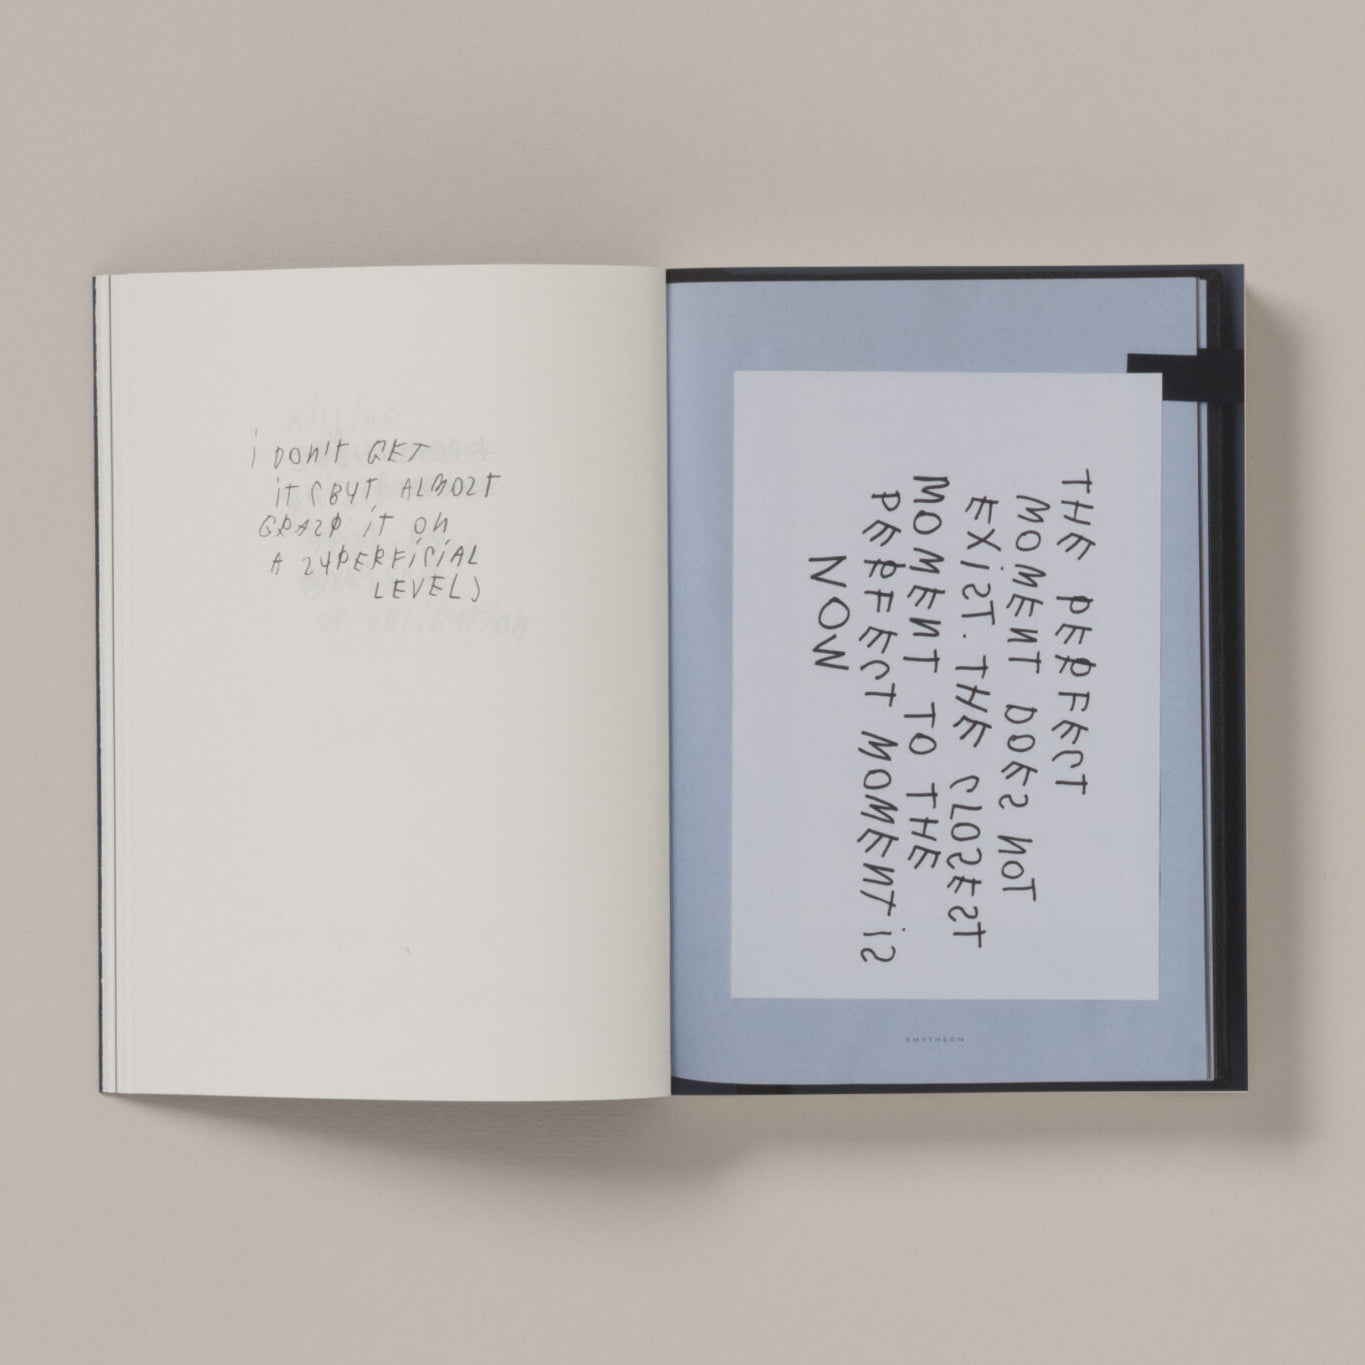 i DON'T GET
iT (BUT ALMOST
GRASP iT ON
A SUPERFiCiAL
LEVEL)
THE PERFECT
MOMENT DOES NOT
EXiST. THE CLOSEST
MOMENT TO THE
PERFECT MOMENT iS
NOW
SMYTHSON